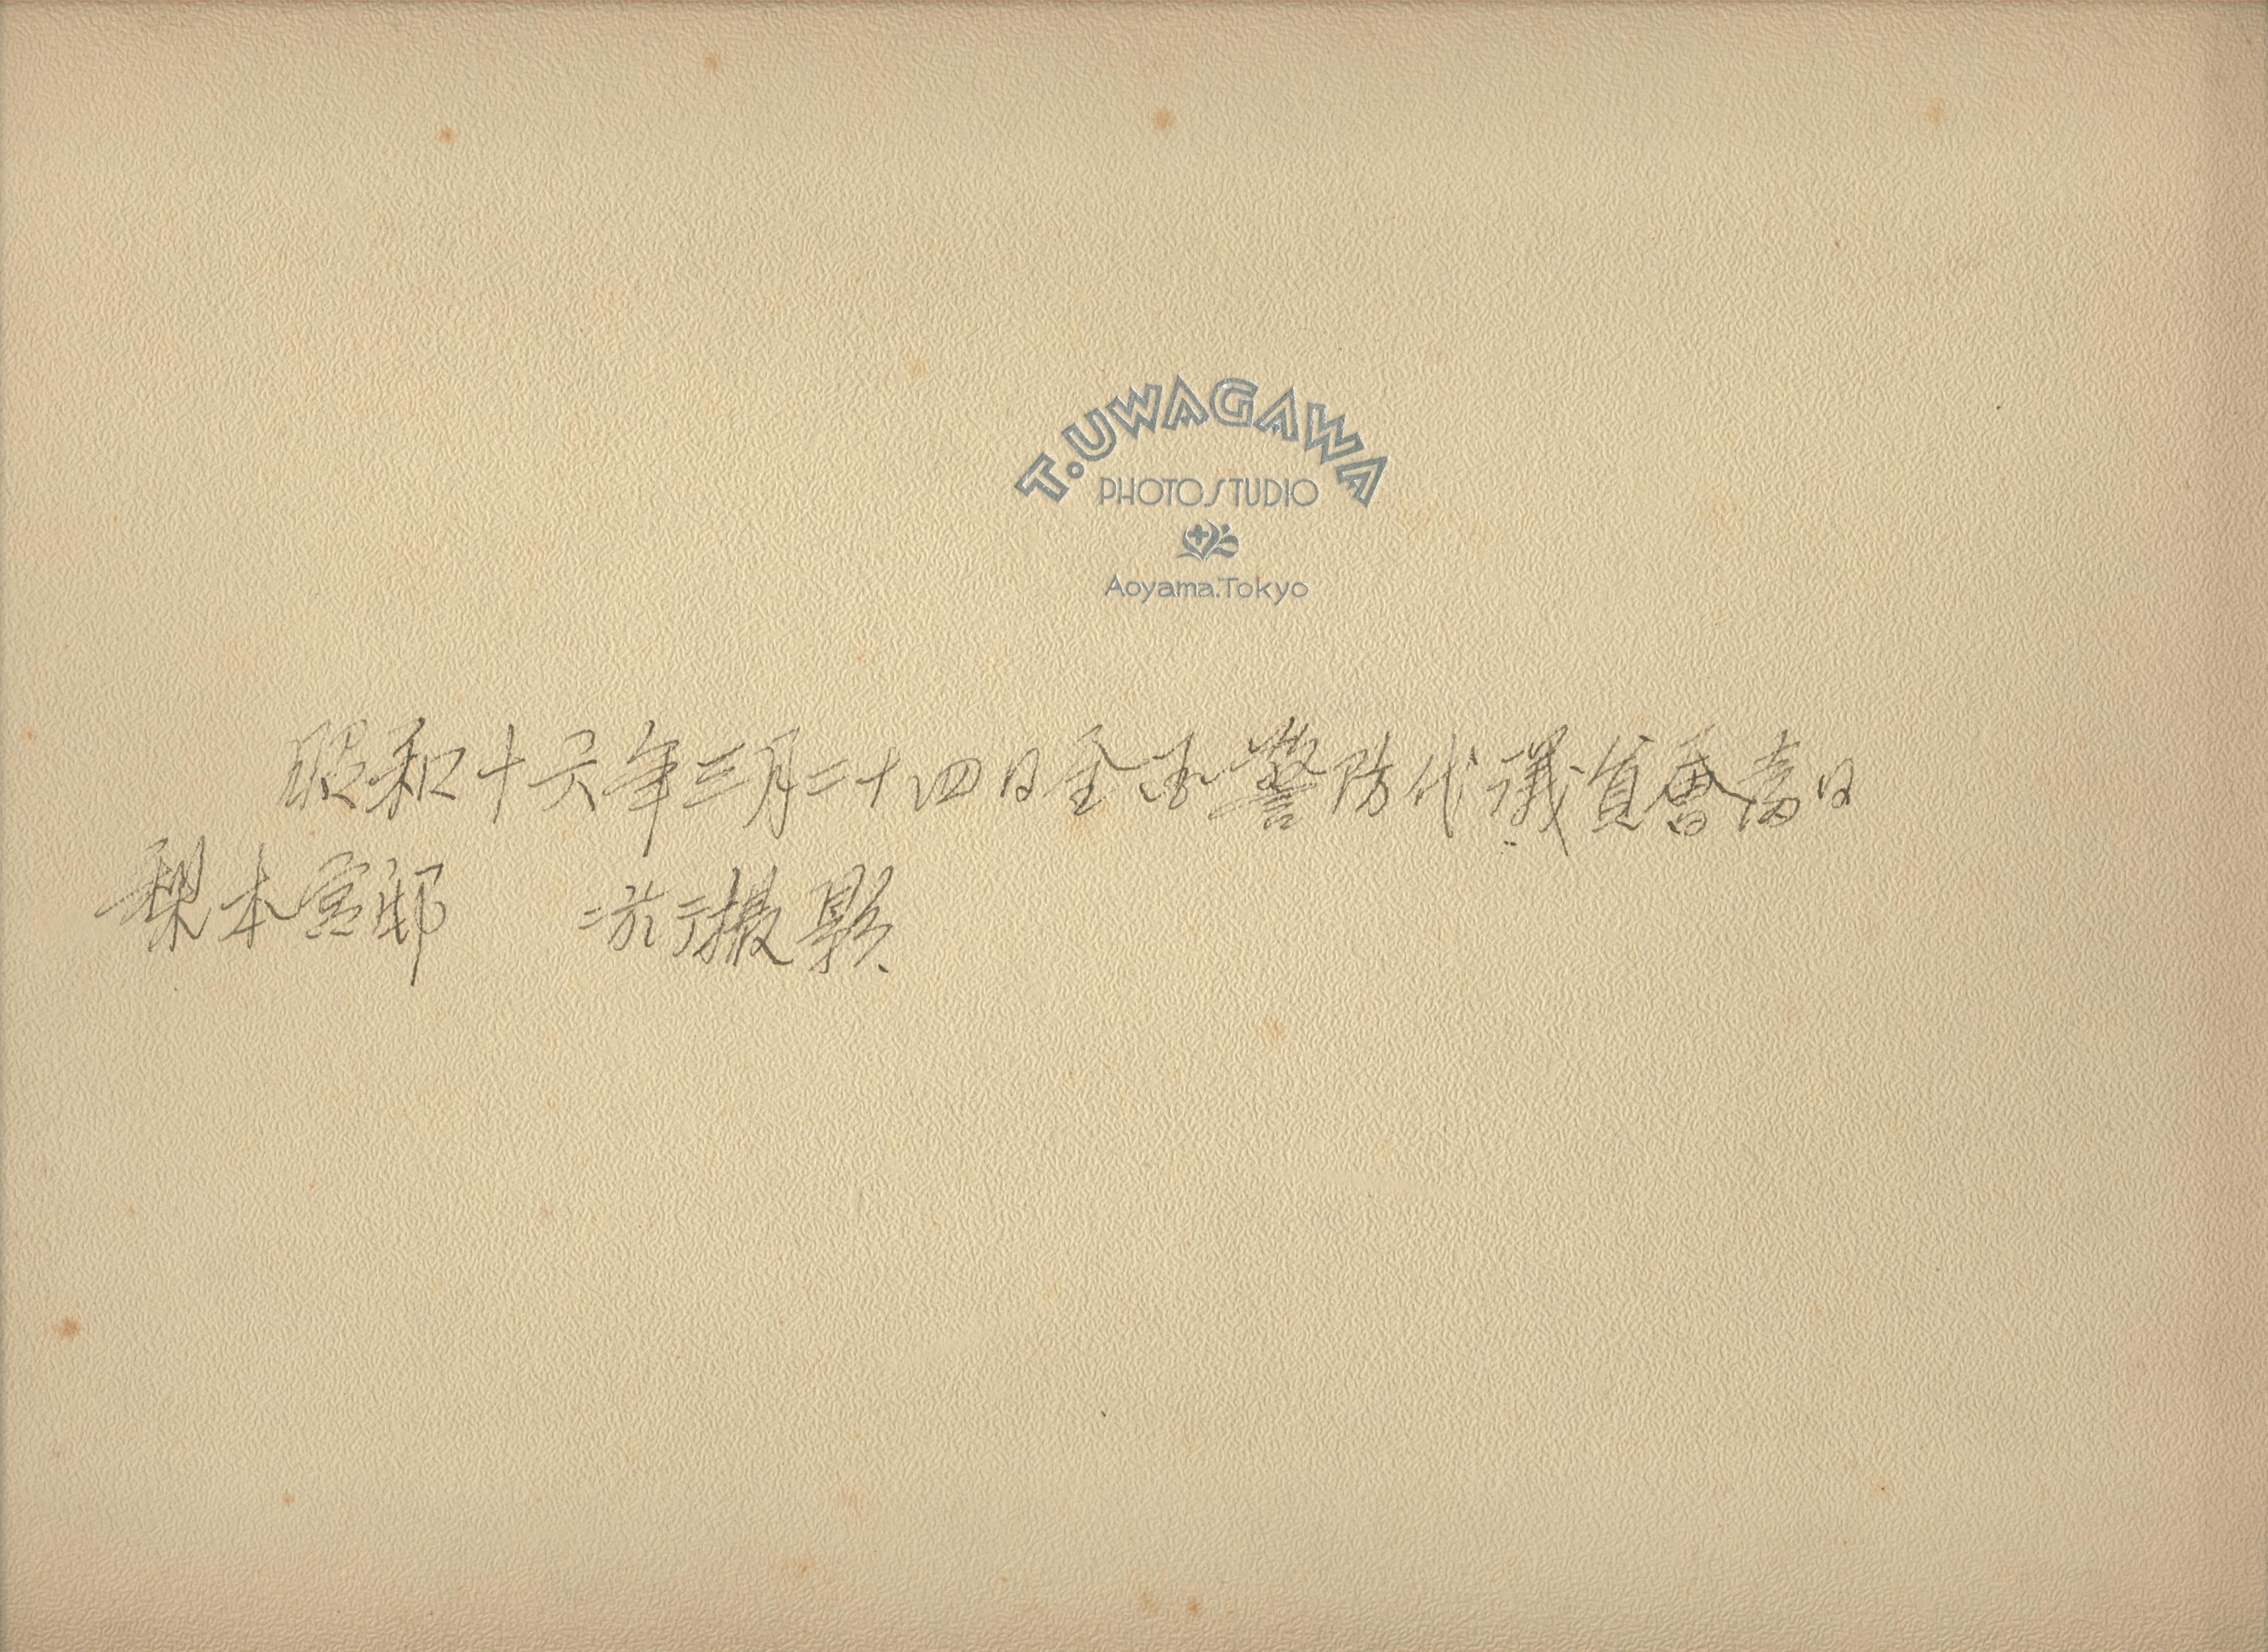 T.UWAGAWA
PHOTO STUDIO
Aoyama.Tokyo
昭和十六年三月二十四日全國警防代議員會當日
梨本宮邸 ニ於テ撮影